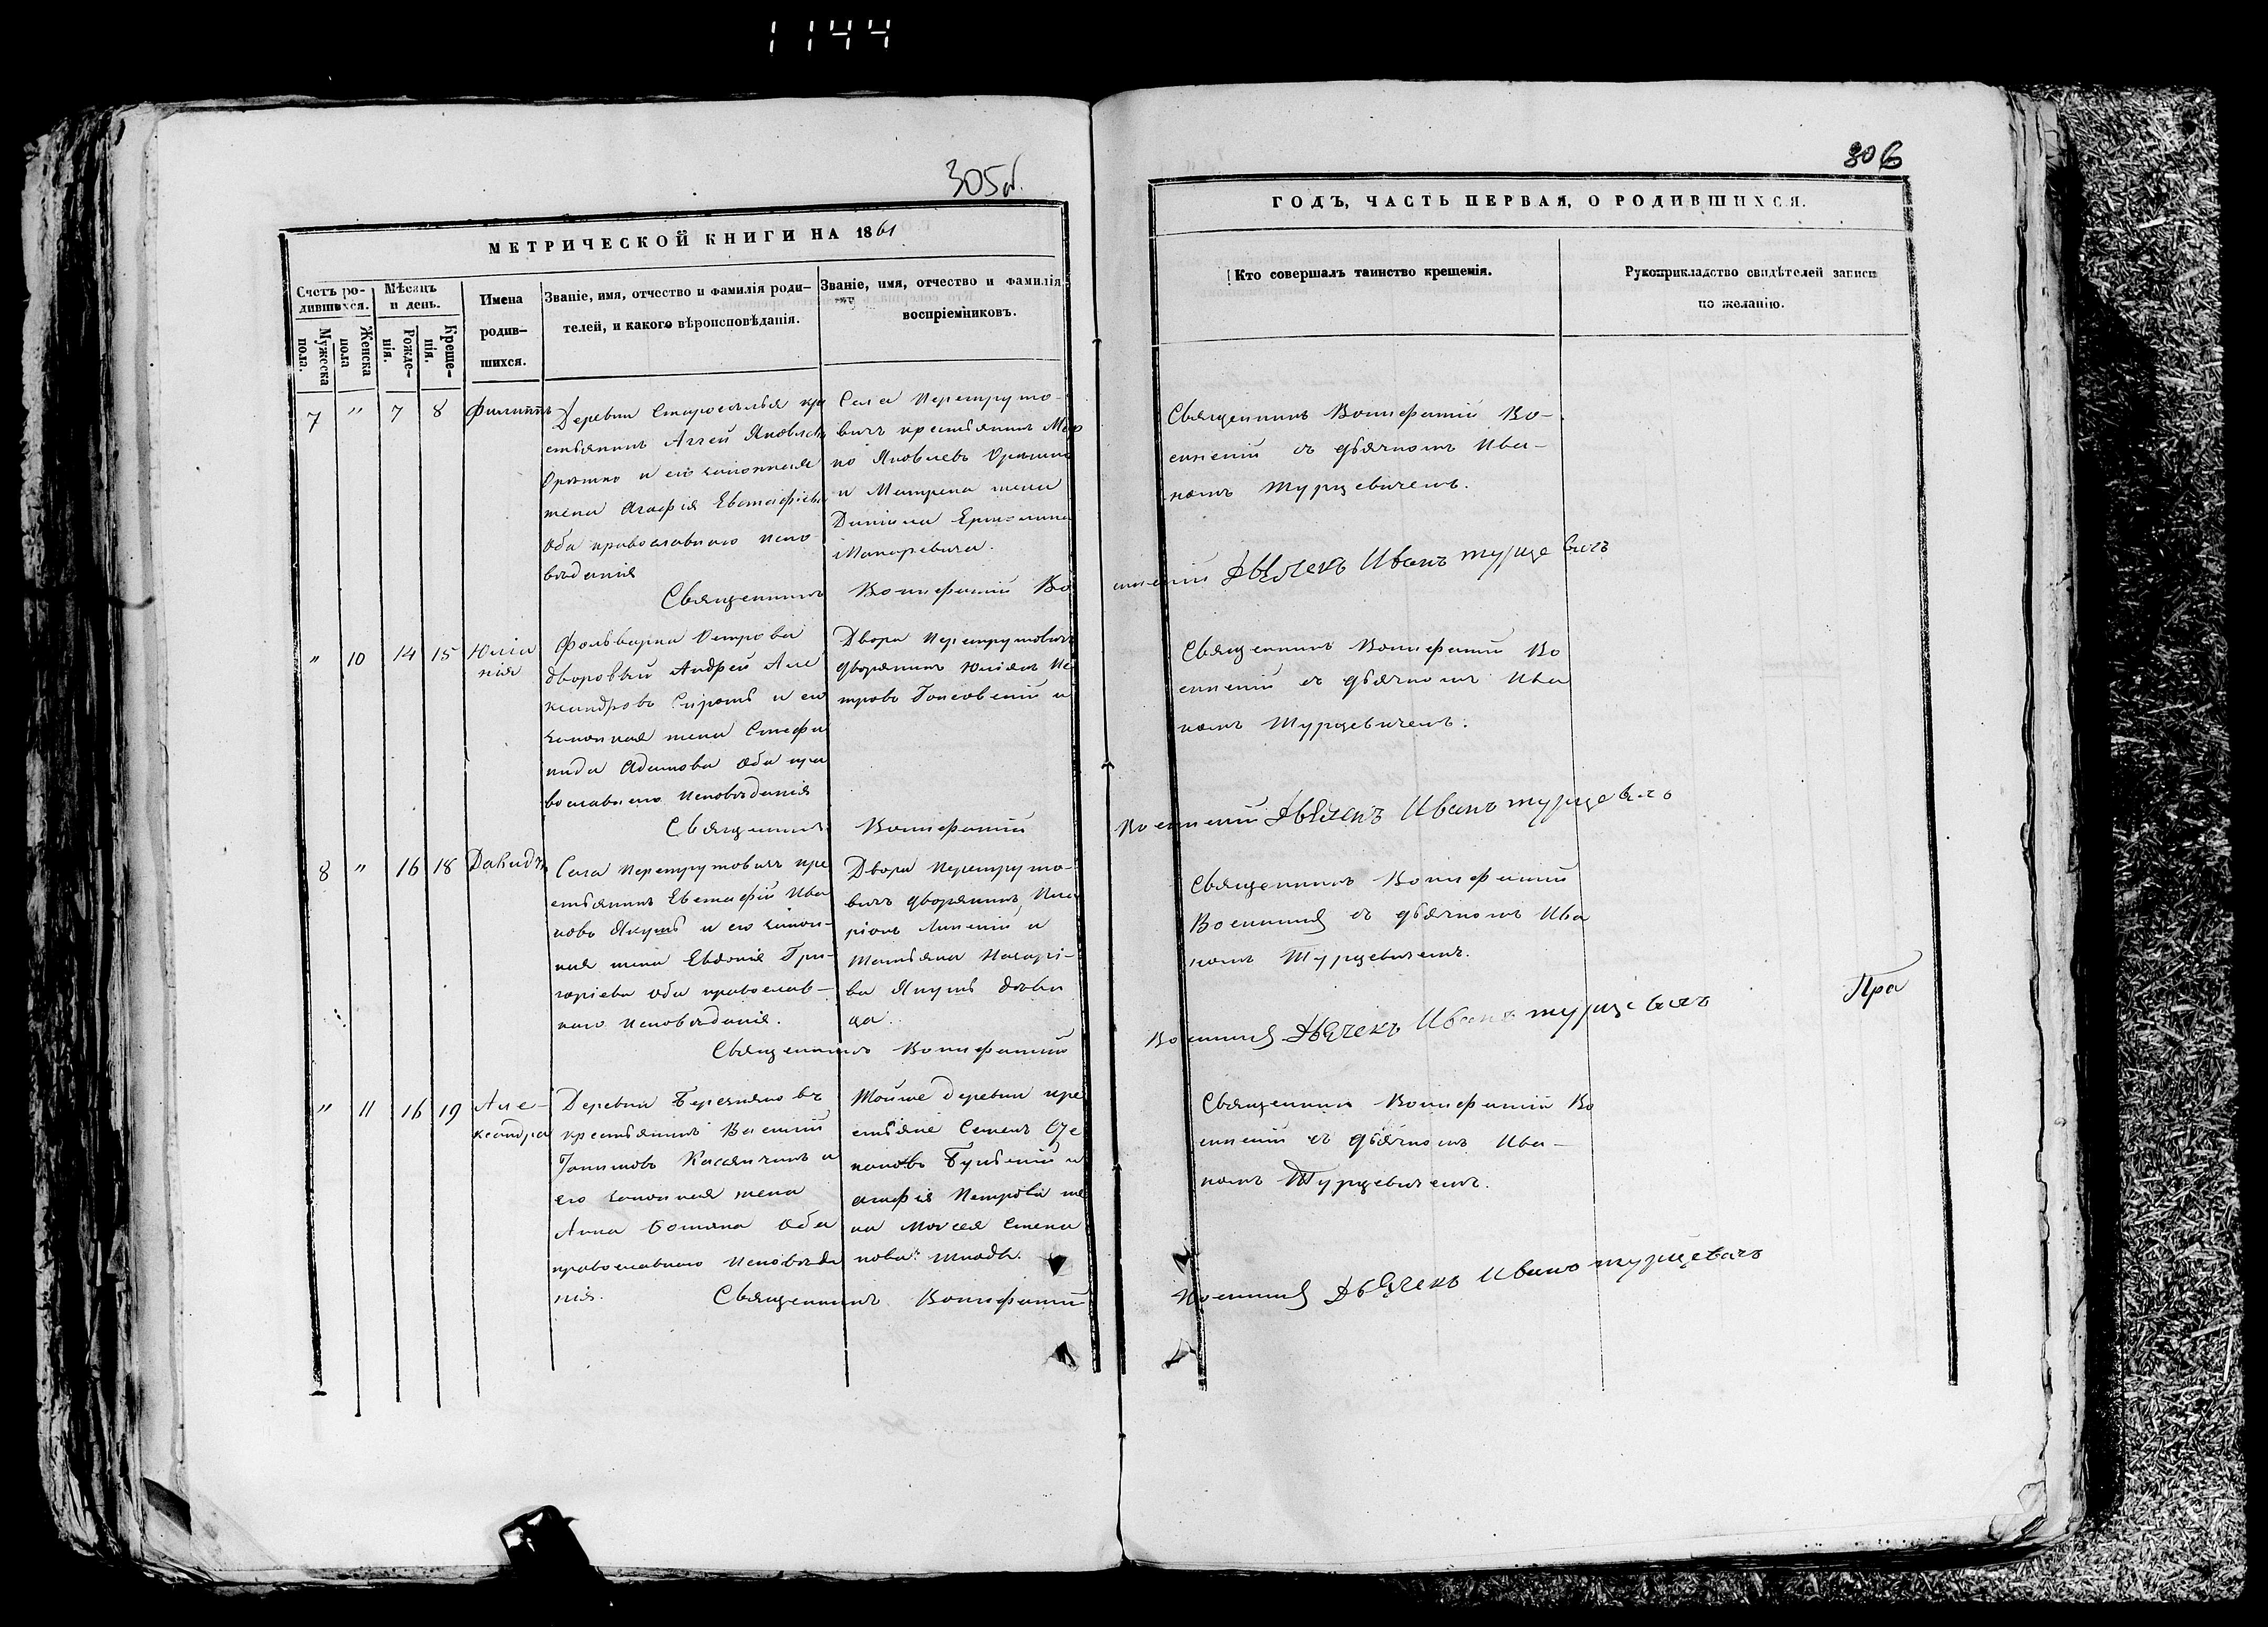 1144
305об.
МЕТРИЧЕСКОЙ КНИГИ НА 1861
Счетъ ро-
дившихся.
Мужеска
пола.
Женска
пола
Мѣсяцъ
и день.
Рожде-
нія.
Креще-
нія.
Имена
родив-
шихся.
Званіе, имя, отчество и фамилія роди-
телей, и какого вѣроисповѣданія.
Званіе, имя, отчество и фамилія
воспріемниковъ.
7 " 7 8 Филиппъ
Деревни Староселья кре
стьянинъ Яковлевъ
и его законная
жена Агафія Евстафіева
оба православнаго испо
вѣданія
Села Перетруто-
вичъ крестьянинъ
Яковлевъ
и Матрена жена
Даніила
Макаревича.
Священникъ Вонифатій Во
" 10 14 15 Юліа
нія
Фольварка Острова
дворовый Андрей Але
ксандровъ и его
законная жена Стефа
нида Адамова оба пра
вославнаго исповѣданія
Двора Перетрутовичъ
дворянинъ Юліянъ Пе
тровъ и
Священникъ Вонифатій
8 " 16 18 Давидъ
Села Перетрутовичъ кре
стьянинъ Евстафій Ива
новъ Якушъ и его закон-
ная жена Евдокія Гри-
горіева оба православ-
наго исповѣданія.
Двора Перетруто-
вичъ дворянинъ Ила
ріонъ и
Татьяна
ва Якушъ дѣви
ца.
Священникъ Вонифатій
" 11 16 19 Але-
ксандра
Деревни Березняковъ
крестьянинъ Василій
и
его законная жена
Анна оба
православнаго исповѣда
нія.
Тойже деревни кре
стьяне Семенъ Сте
пановъ и
Агафія Петрова же
на Моисея Степа
нова
Священникъ Вонифатій
306
ГОДЪ, ЧАСТЬ ПЕРВАЯ, О РОДИВШИХСЯ.
Кто совершалъ таинство крещенія.
Рукоприкладство свидѣтелей записи
по желанію.
Священникъ Вонифатій Во-
съ дьячкомъ Ива-
номъ Турцевичемъ.
Дьячекъ Иванъ Турцевичъ
Священникъ Вонифатій Во
съ дьячкомъ Ива
номъ Турцевичемъ.
Дьячекъ Иванъ Турцевичъ
Священникъ Вонифатій
съ дьячкомъ Ива
номъ Турцевичемъ.
Дьячекъ Иванъ Турцевичъ
Пра
Священникъ Вонифатій Во
съ дьячкомъ Ива-
номъ Турцевичемъ.
Дьячекъ Иванъ Турцевичъ